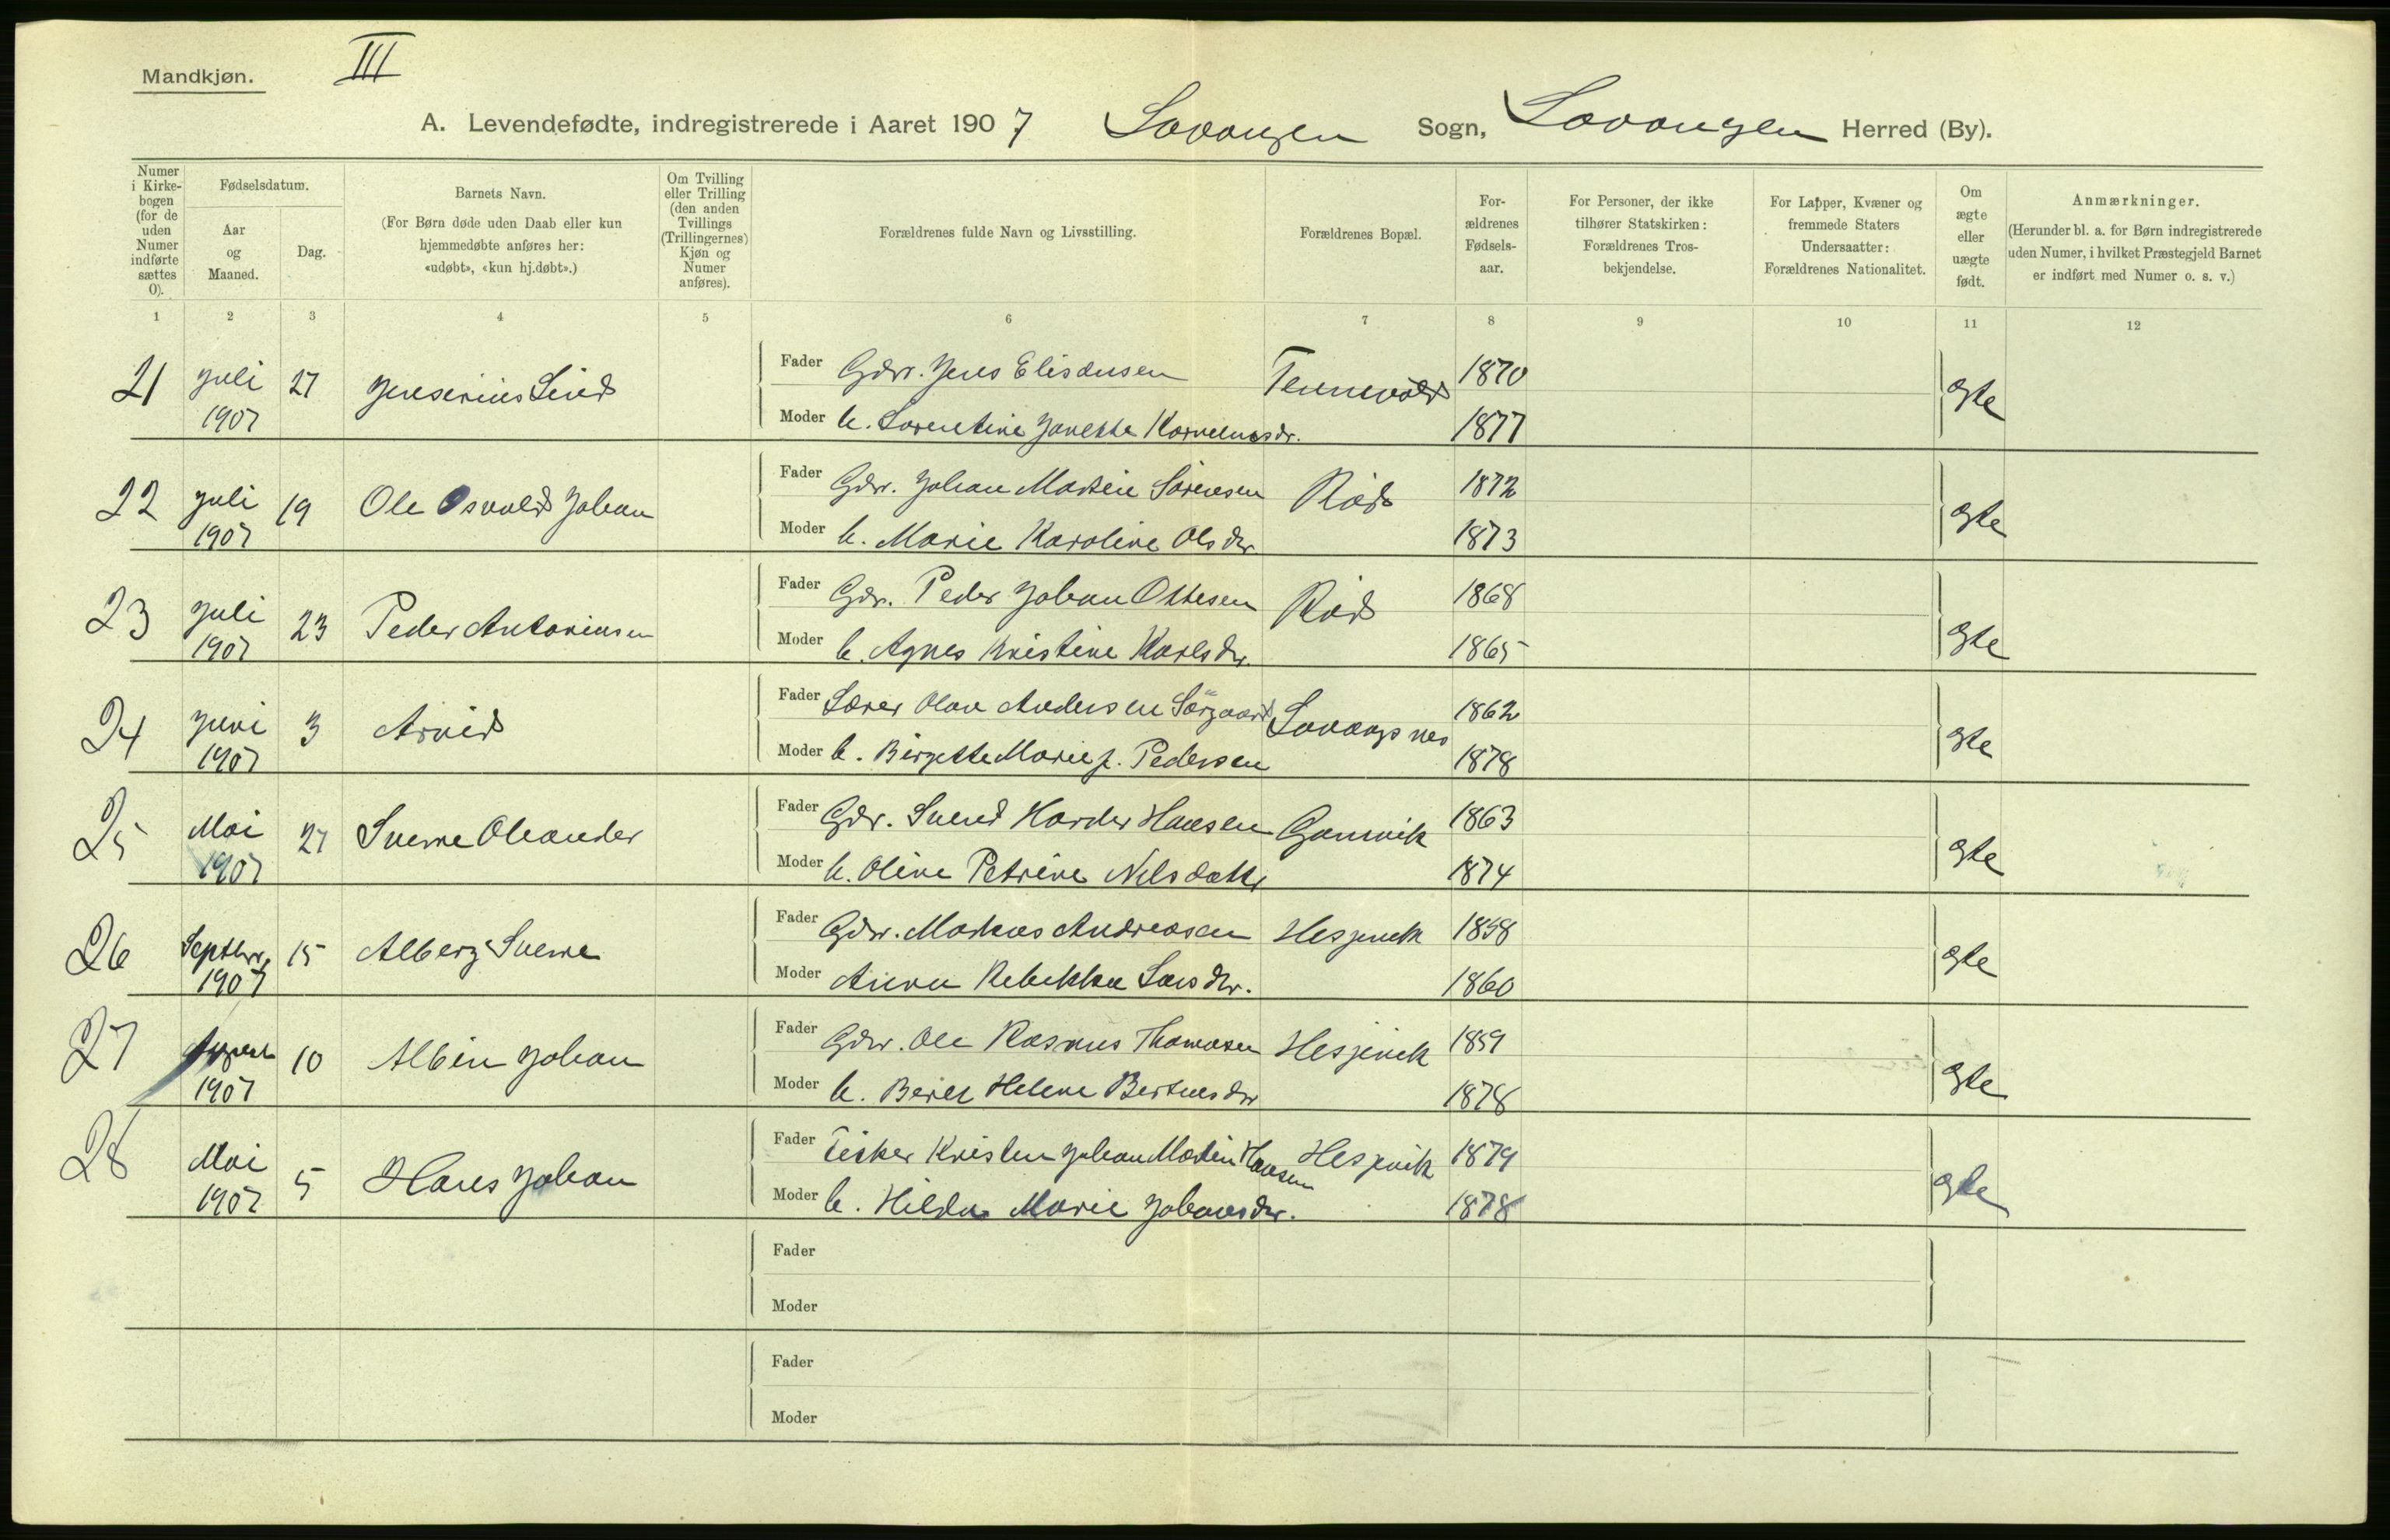 Mandkjøn.
III
A. Levendefødte, indregistrerede i Aaret 1907 Lavangen Sogn, Lavangen Herred (By).
Numer i Kirkebogen (for de uden Numer indførte sættes 0).
Fødselsdatum.
Aar og Maaned.
Dag.
Barnets Navn.
(For Børn døde uden Daab eller kun hjemmedøbte anføres her: «udøbt», «kun hj.døbt».)
Om Tvilling eller Trilling (den anden Tvillings (Trillingernes) Kjøn og Numer anføres).
Forældrenes fulde Navn og Livsstilling.
Forældrenes Bopæl.
Forældrenes Fødselsaar.
For Personer, der ikke tilhører Statskirken: Forældrenes Trosbekjendelse.
For Lapper, Kvæner og fremmede Staters Undersaatter: Forældrenes Nationalitet.
Om ægte eller uægte født.
Anmærkninger.
(Herunder bl. a. for Børn indregistrerede uden Numer, i hvilket Præstegjeld Barnet er indført med Numer o. s. v.)
1 2 3 4 5 6 7 8 9 10 11 12
21 juli 1907 27 Jenserius Lind
Fader Gdr. Jens Elisæusen Tennevold 1870 gte
Moder h. Lorentine Janette Korneliusdr. 1877
22 juli 1907 19 Ole Osvald Johan
Fader Gdr. Johan Martin Sørensen Rød 1872 gte
Moder h. Marie Karoline Olsdr 1873
23 juli 1907 23 Peder Antoniusen
Fader Gdr. Peder Johan Ottesen Rød 1868 gte
Moder h. Agnes Kristine Karlsdr. 1865
24 juni 1907 3 Arvid
Fader Lærer Olav Andersen Sørgaard Lavangsnes 1862 gte
Moder h. Birgitte Marie f. Pedersen 1878
25 Mai 1907 27 Sverre Oleander
Fader Gdr. Svend Harder Hansen Gamvik 1863 gte
Moder h. Oline Petrine Nilsdatter 1874
26 Septbr. 1907 15 Alberg Sverre
Fader Gdr. Markus Andreasen Hesjevik 1858 gte
Moder Anna Rebekka Larsdr. 1860
27 August 1907 10 Albin Johan
Fader Gdr. Ole Rasmus Thomasen Hesjevik 1859 gte
Moder h. Berit Helene Bertheusdr 1878
28 Mai 1907 5 Hans Johan
Fader Fisker Kristen Johan Martin Hansen Hesjevik 1879 gte
Moder h. Hilda Marie Johansdr. 1878
Fader
Moder
Fader
Moder